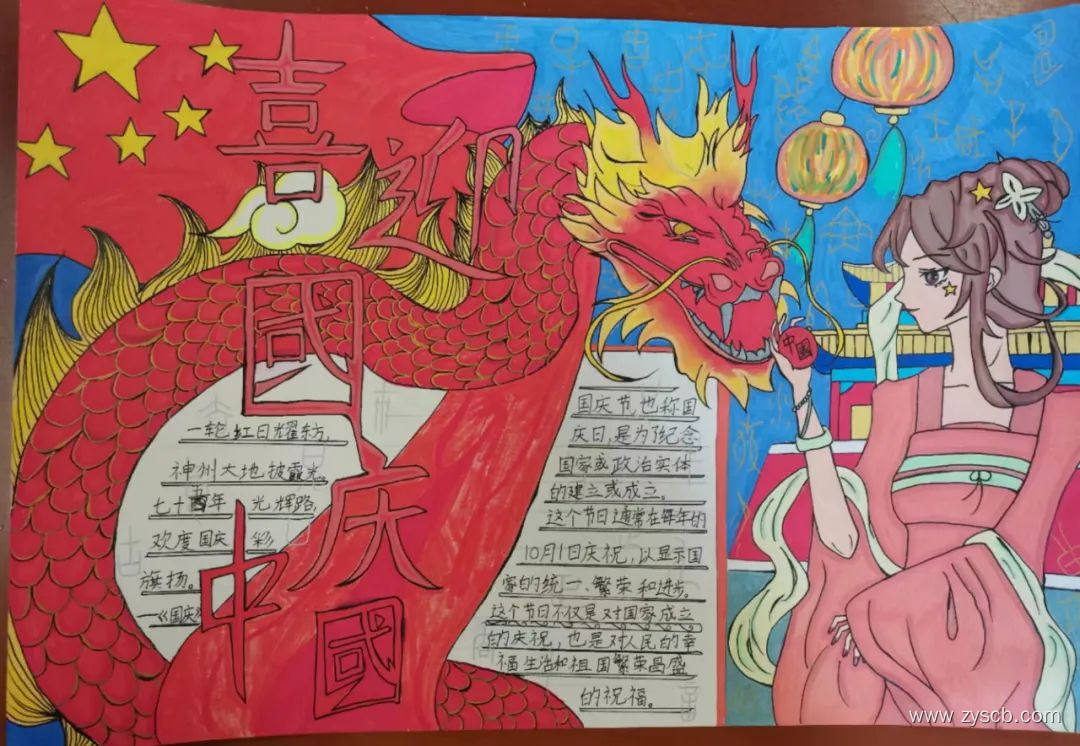 喜迎國慶
中國
一轮红日耀东方,
神州大地披霞光。
七十四年 光辉路,
欢度国庆 彩
旗扬。
—《国庆》
国庆节,也称国
庆日,是为了纪念
国家或政治实体
的建立或成立。
这个节日通常在每年的
10月1日庆祝,以显示国
家的统一、繁荣和进步。
这个节日不仅是对国家成立
的庆祝,也是对人民的幸
福生活和祖国繁荣昌盛
的祝福。
中國
www.zyscb.com